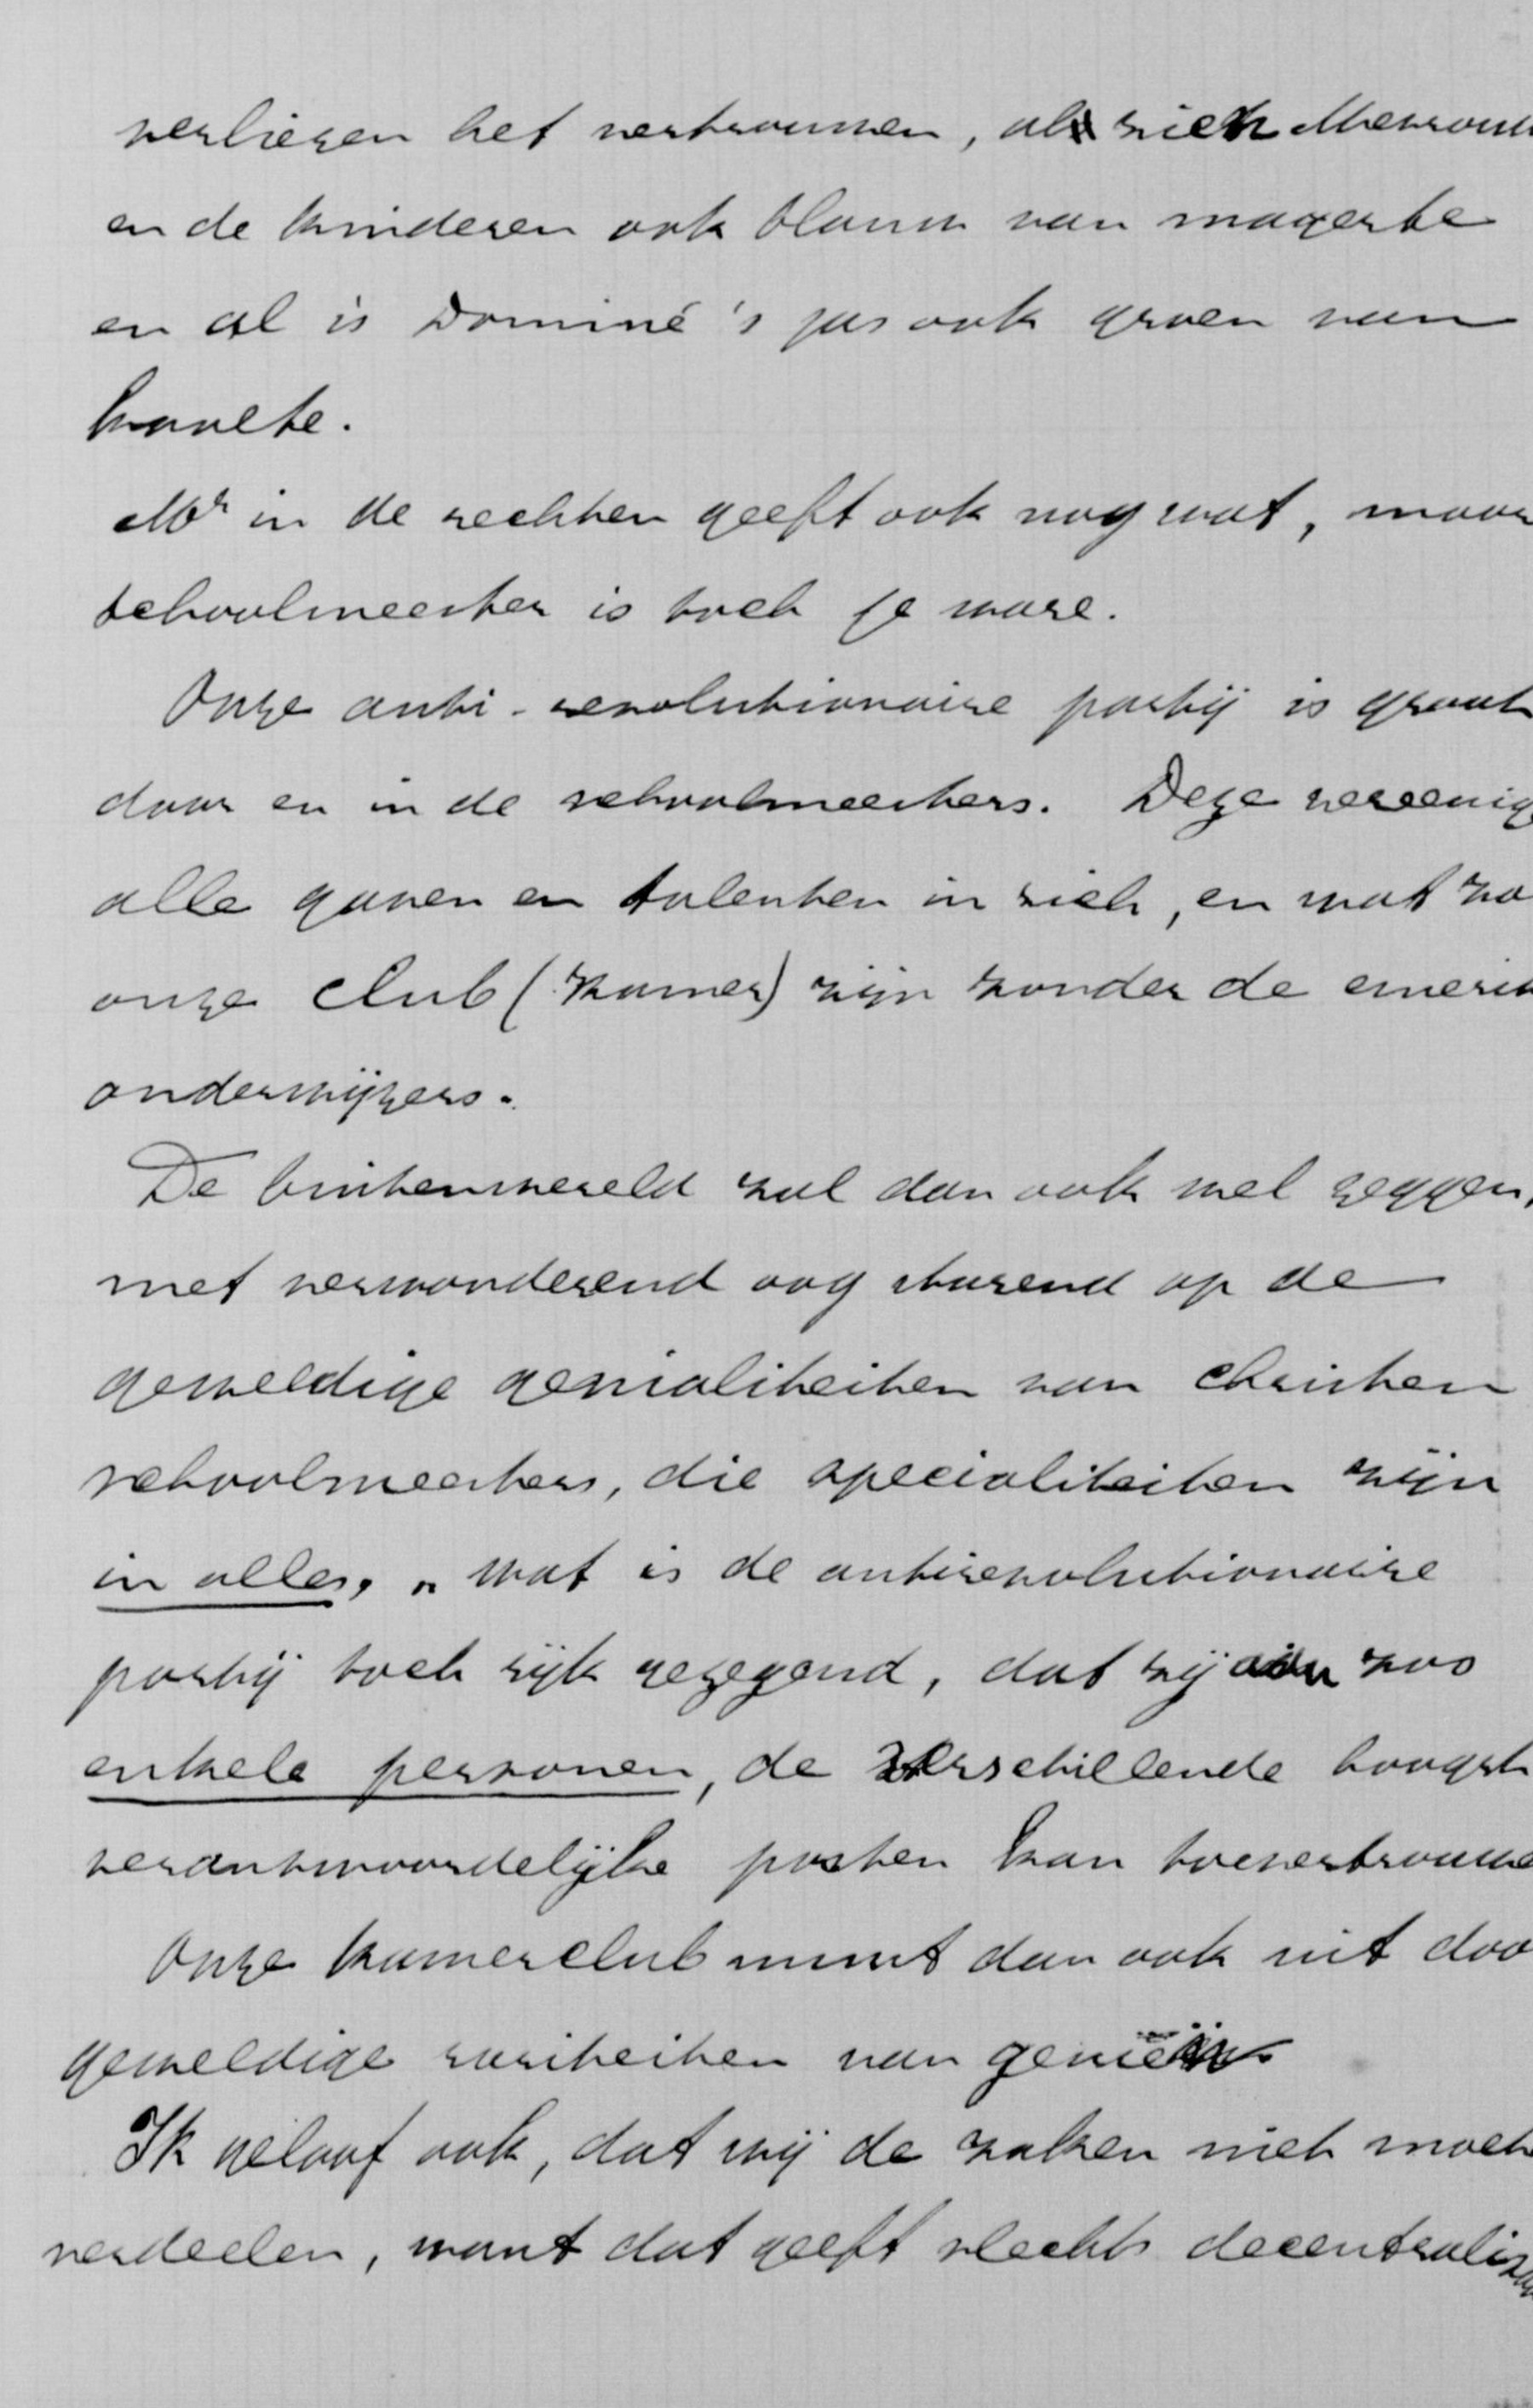 verliezen het vertrouwen, al zien Mevrouw
en de kinderen ook blauw van magerte
en al is Dominé's jas ook groen van
kaalte.
Mr in de rechten geeft ook nog wat, maar
schoolmeester is toch je ware.
Onze anti-revolutionaire partij is groot
door en in de schoolmeesters. Deze vereenig
alle gaven en talenten in zich, en wat zo
onze club (Kamer) zijn zonder de emerit
onderwijzers.
De buitenwereld zal dan ook wel zeggen,
met verwonderend oog starend op de
geweldige genialiteiten van christen
schoolmeesters, die specialiteiten zijn
in alles, „wat is de antirevolutionaire
partij toch rijk gezegend, dat zij aan zoo
enkele personen, de verschillende hoogst
verantwoordelijke posten kan toevertrouwe
Onze kamerclub munt dan ook uit doo
geweldige rariteiten van genieën
Ik geloof ook, dat wij de zaken niet moet
verdeelen, want dat geeft slechts decentralisa